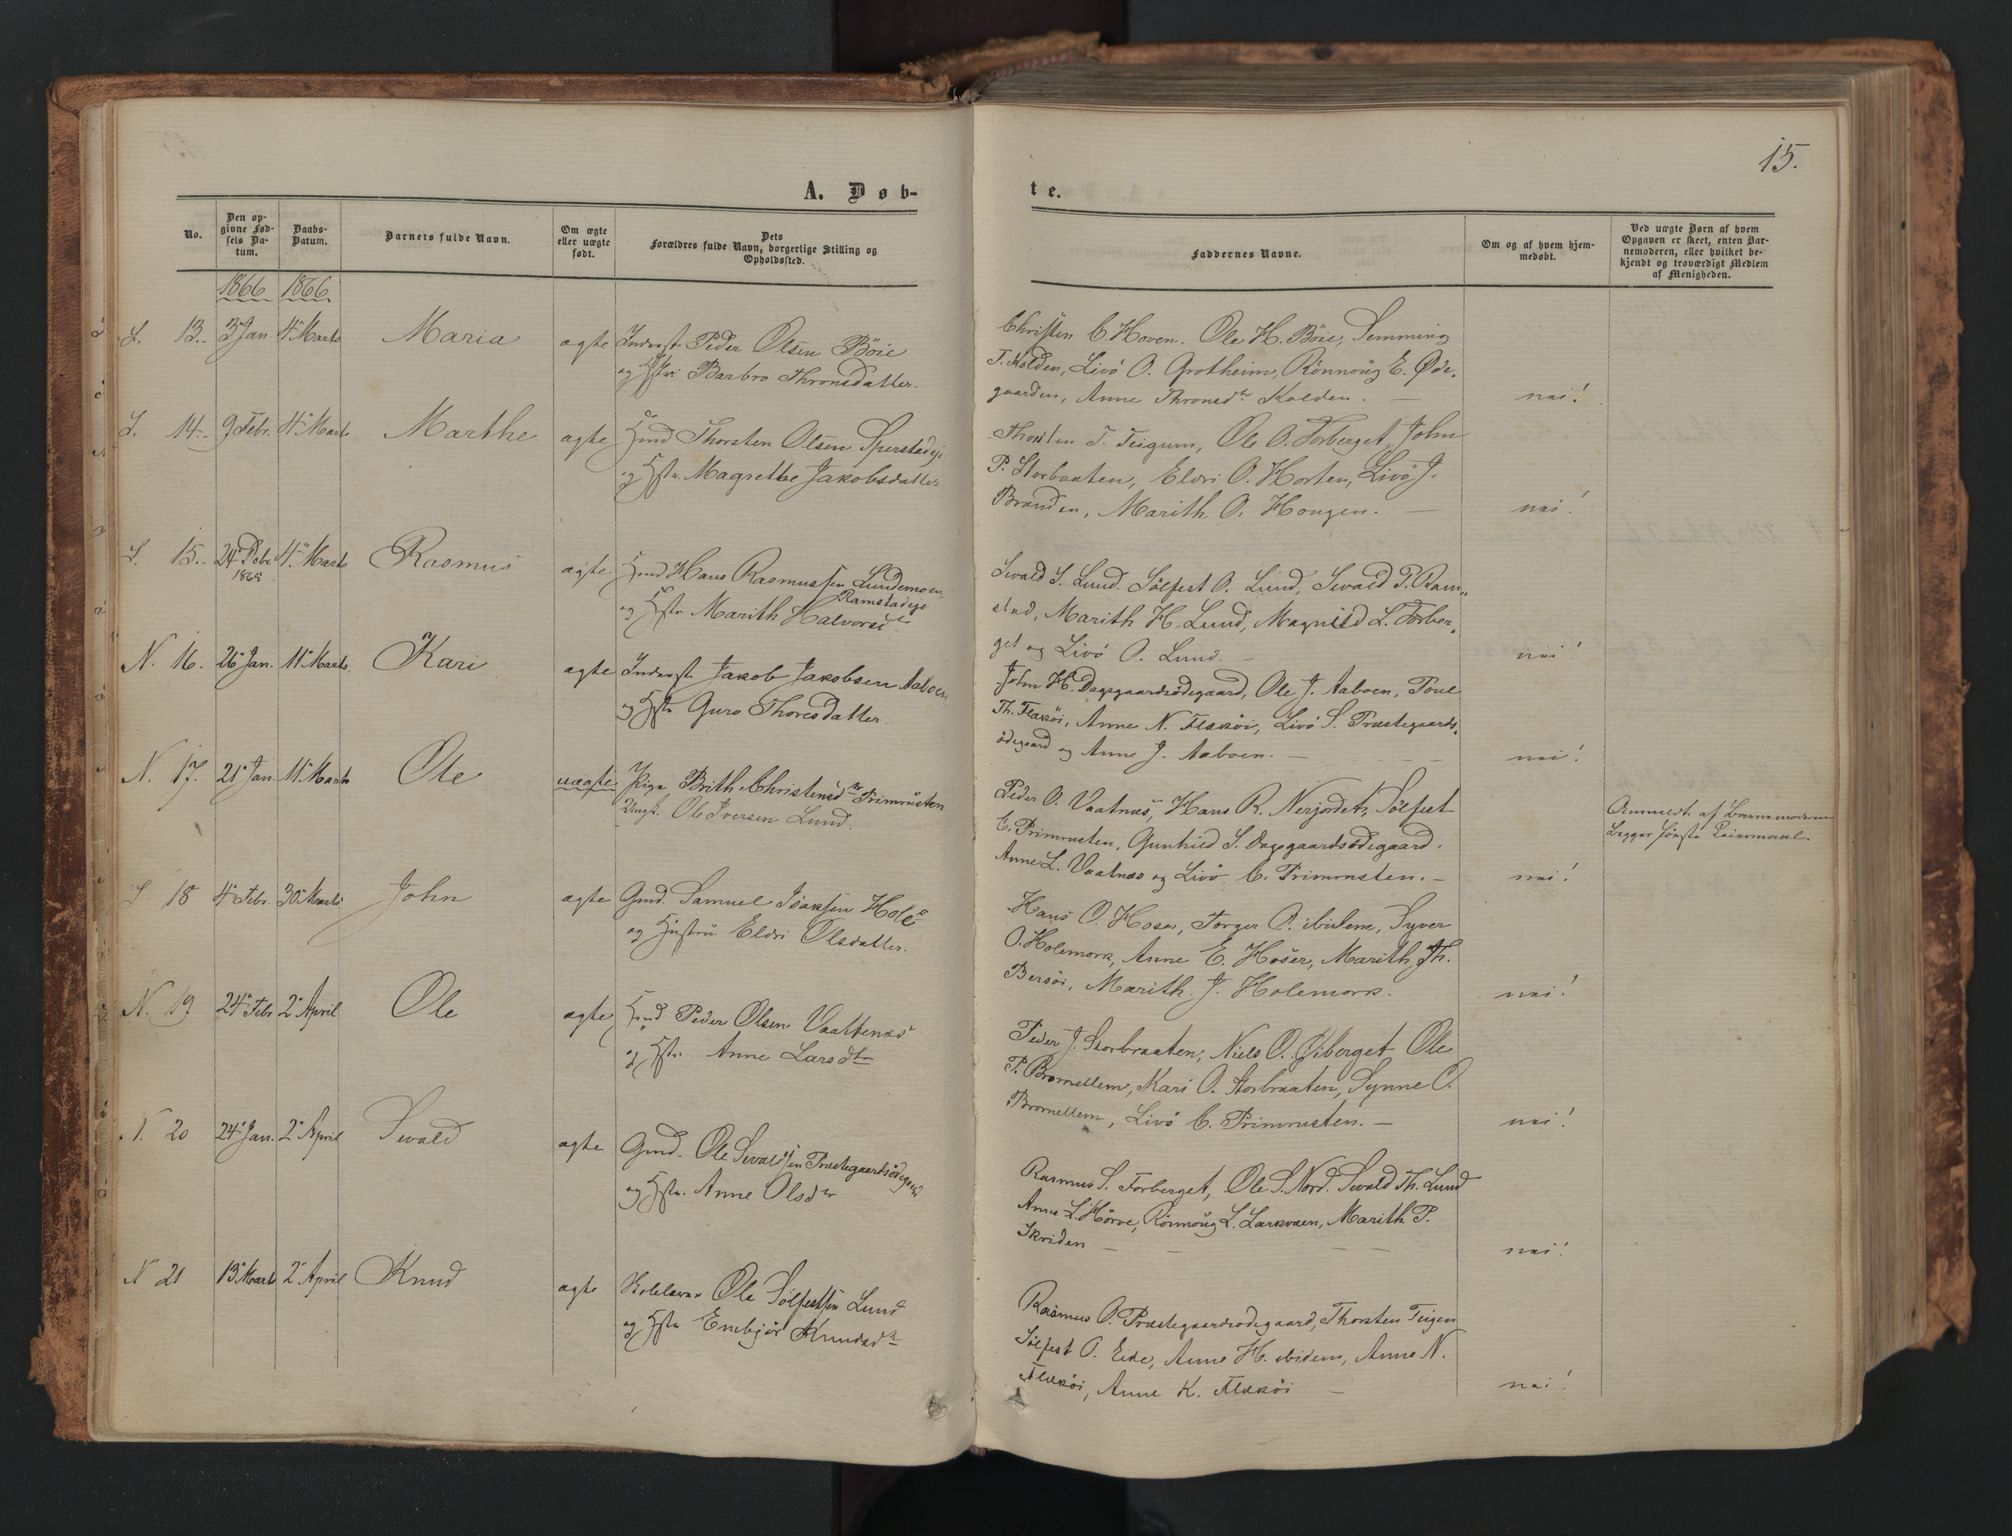 15.
A. Døb-
te.
No.
Den op-
givne Fød-
sels Da-
tum.
Daabs-
Datum.
Barnets fulde Navn.
Om ægte
eller uægte
født.
Dets
Forældres fulde Navn, borgerlige Stilling og
Opholdssted.
Faddernes Navne.
Om og af hvem hjem-
medøbt.
Ved uægte Børn af hvem
Opgaven er skeet, enten Bar-
nemoderen, eller hvilket be-
kjendt og troværdigt Medlem
af Menigheden.
1866 1866
13. 3 Jan 4 Marts Maria ægte Inderst Peder Olsen Böie
og Barbro Thronsdatter.
Christen C. Hoven. Ole H. Böie, Semming
T. Kolden, Livö O. Grotheim, Rönnoug E. Øde-
gaarden, Anne Thronsdtr Kolden. — nei!
14. 9 Febr. 4 Marts Marthe ægte Thorsten Olsen
og Hstr. Magrethe Jakobsdatter
Thorsten T. Teigum, Ole O. Forberget, John
P. Storbraaten, Eldri O. Horten, Livö J.
Branden, Marith O. Hougen. — nei!
S. 15. 24 Debr 1865 4 Marts Rasmus ægte Hans Rasmussen Lundemoen
Ramstadeje
og Hstr Marith Halvorsd
Sivald S. Lund. Sölfest O. Lund, Sivald P. Ram-
stad, Marith H. Lund, Magnild L. Forber-
get og Livö O. Lund. — nei!
N. 16. 26 Jan. 11 Marts Kari ægte Inderst Jakob Jakobsen Aaboen
og Hstr Guro Thoresdatter
John H. Dagsgaardsødegaard, Ole J. Aaboen, Poul
Th. Flækøi, Anne N. Flækøi, Livö S. Præstegaards-
ödegaard og Anne J. Aaboen. — nei!
N. 17. 21 Jan. 11 Marts Ole uægte Pige Brith Christensdtr Primrusten
Ungk. Ole Iversen Lund.
Peder O. Vaatnæs, Hans R. Nerjordet, Sölfest
C. Primrusten, Gunhild S. Dagsgaardsödegaard.
Anne L. Vaatnæs og Livö C. Primrusten. — nei!
Anmeldt af Barnemoderen
Begges förste Leiermaal.
S 18 4 Febr. 30 Marts John ægte Gmd. Samuel Isaksen Hole
og Hustru Eldri Olsdatter.
Hans O. Hoser, Torger O. ibidem, Syver
O. Holemork, Anne E. Hoser, Marith Th.
Bersöi, Marith J. Holemork. nei!
N. 19 24 Febr 2 April Ole ægte Peder Olsen Vaattenæs
og Hstr. Anne Larsdtr
Peder J. Storbraaten, Niels O. Viberget Ole
P. Bromellem, Kari O. Storbraaten, Synne O.
Bromellem, Livö C. Primrusten. — nei!
N. 20 24 Jan. 2 April Sivald ægte Gmd. Ole Sivaldsen Præstegaardsödegaard
og Hstr. Anne Olsdtr
Rasmus S. Forberget, Ole S. Nord. Sivald Th. Lund
Anne L. Hörve, Rönnoug L. Larsveen, Marith P.
Skriden — nei!
N 21 13 Marts 2 April Knud ægte Skolelærer Ole Sölfestsen Lund
og Hstr Embjör Knudsdtr
Rasmus O. Præstegaardsödegaard, Thorsten Teigen
Sölfest O. Eide, Anne H. ibidem, Anne N.
Flækøi, Anne K. Flækøi — nei!